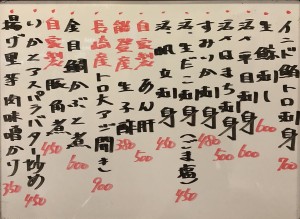 インド鮪刺 900
生鯵刺 600
活〆平目刺身 600
活〆はまち刺身 450
すみいか刺身 480
活生だこ刺身(ごま塩) 450
活帆立刺身 500
自家製 あん肝 500
能登産 生子酢 380
長崎産 トロ大アジ開き 900
金目鯛かぶと煮
自家製 豚角煮 450
いかとアスパラバター炒め 450
揚げ里芋肉味噌かけ 350